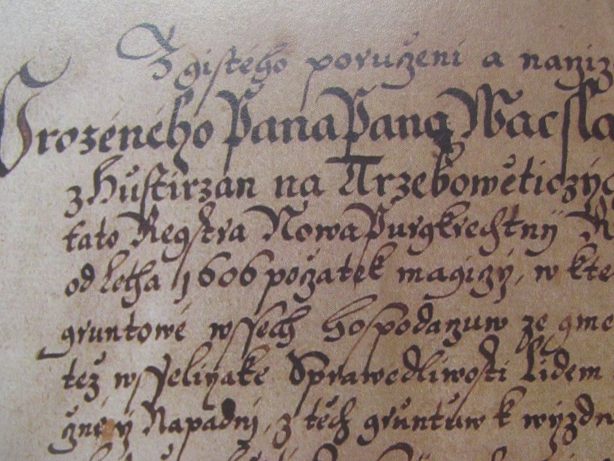 Z gistého poruženi a naniz
Vrozeneho Pana Pana Wacsla
z Hustirzan na Trzebowieticzyc
tato Regstra Nowa Purgkrechtny
od letha 1606 požatek magiczy, w kte
gruntowe wssech hospodarzuw ze gme
też wsseliyake Sprawedliwosti Lidem
żnė y Napadnj, z těch gruntuw k wyzdn